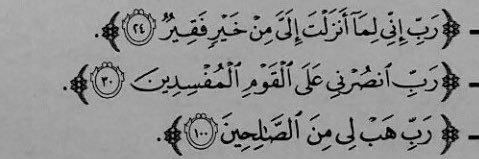 - ﴿رَبِّ إِنِّي لِمَآ أَنزَلۡتَ إِلَيَّ مِنۡ خَيۡرٖ فَقِيرٞ ٢٤﴾.
- ﴿رَبِّ ٱنصُرۡنِي عَلَى ٱلۡقَوۡمِ ٱلۡمُفۡسِدِينَ ٣٠﴾.
- ﴿رَبِّ هَبۡ لِي مِنَ ٱلصَّٰلِحِينَ ١٠٠﴾.